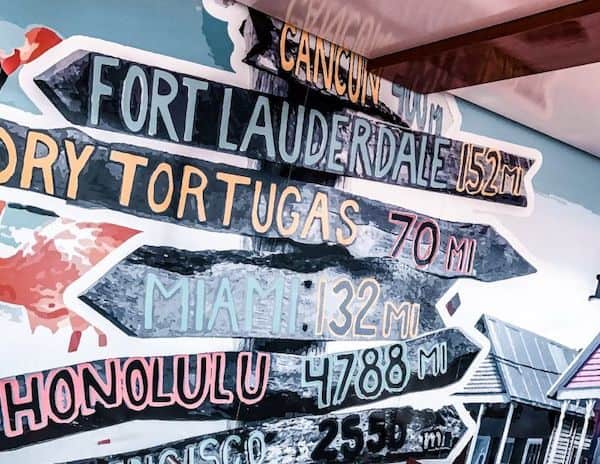 CANCUN 400 MI
FORT LAUDERDALE 152 MI
DRY TORTUGAS 70 MI
MIAMI 132 MI
HONOLULU 4788 MI
CISCO 2550 mi